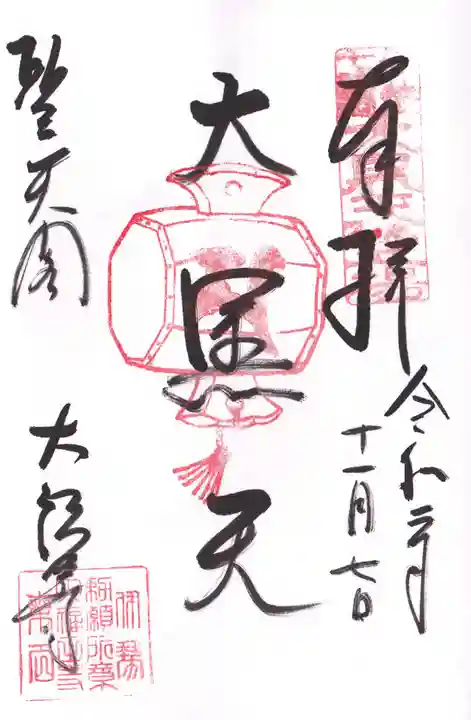 奉拝
令和二年
十一月七日
大黒天
聖天閣
大福田寺